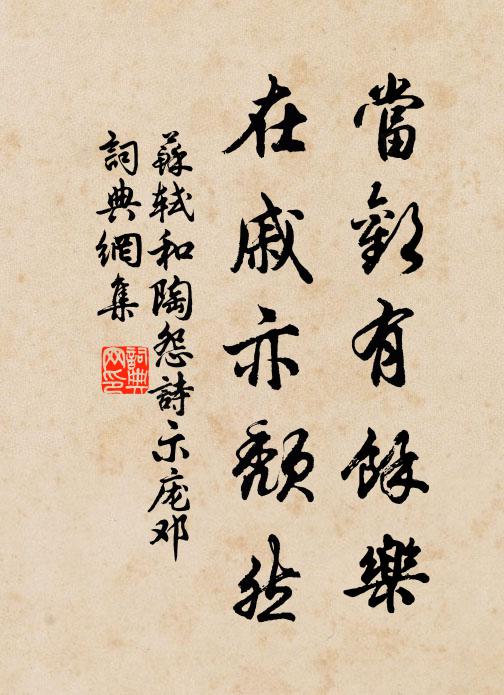 當歡有餘樂
在戚亦頹然
蘇軾和陶怨詩示庞邓
詞典網集
詞典網印